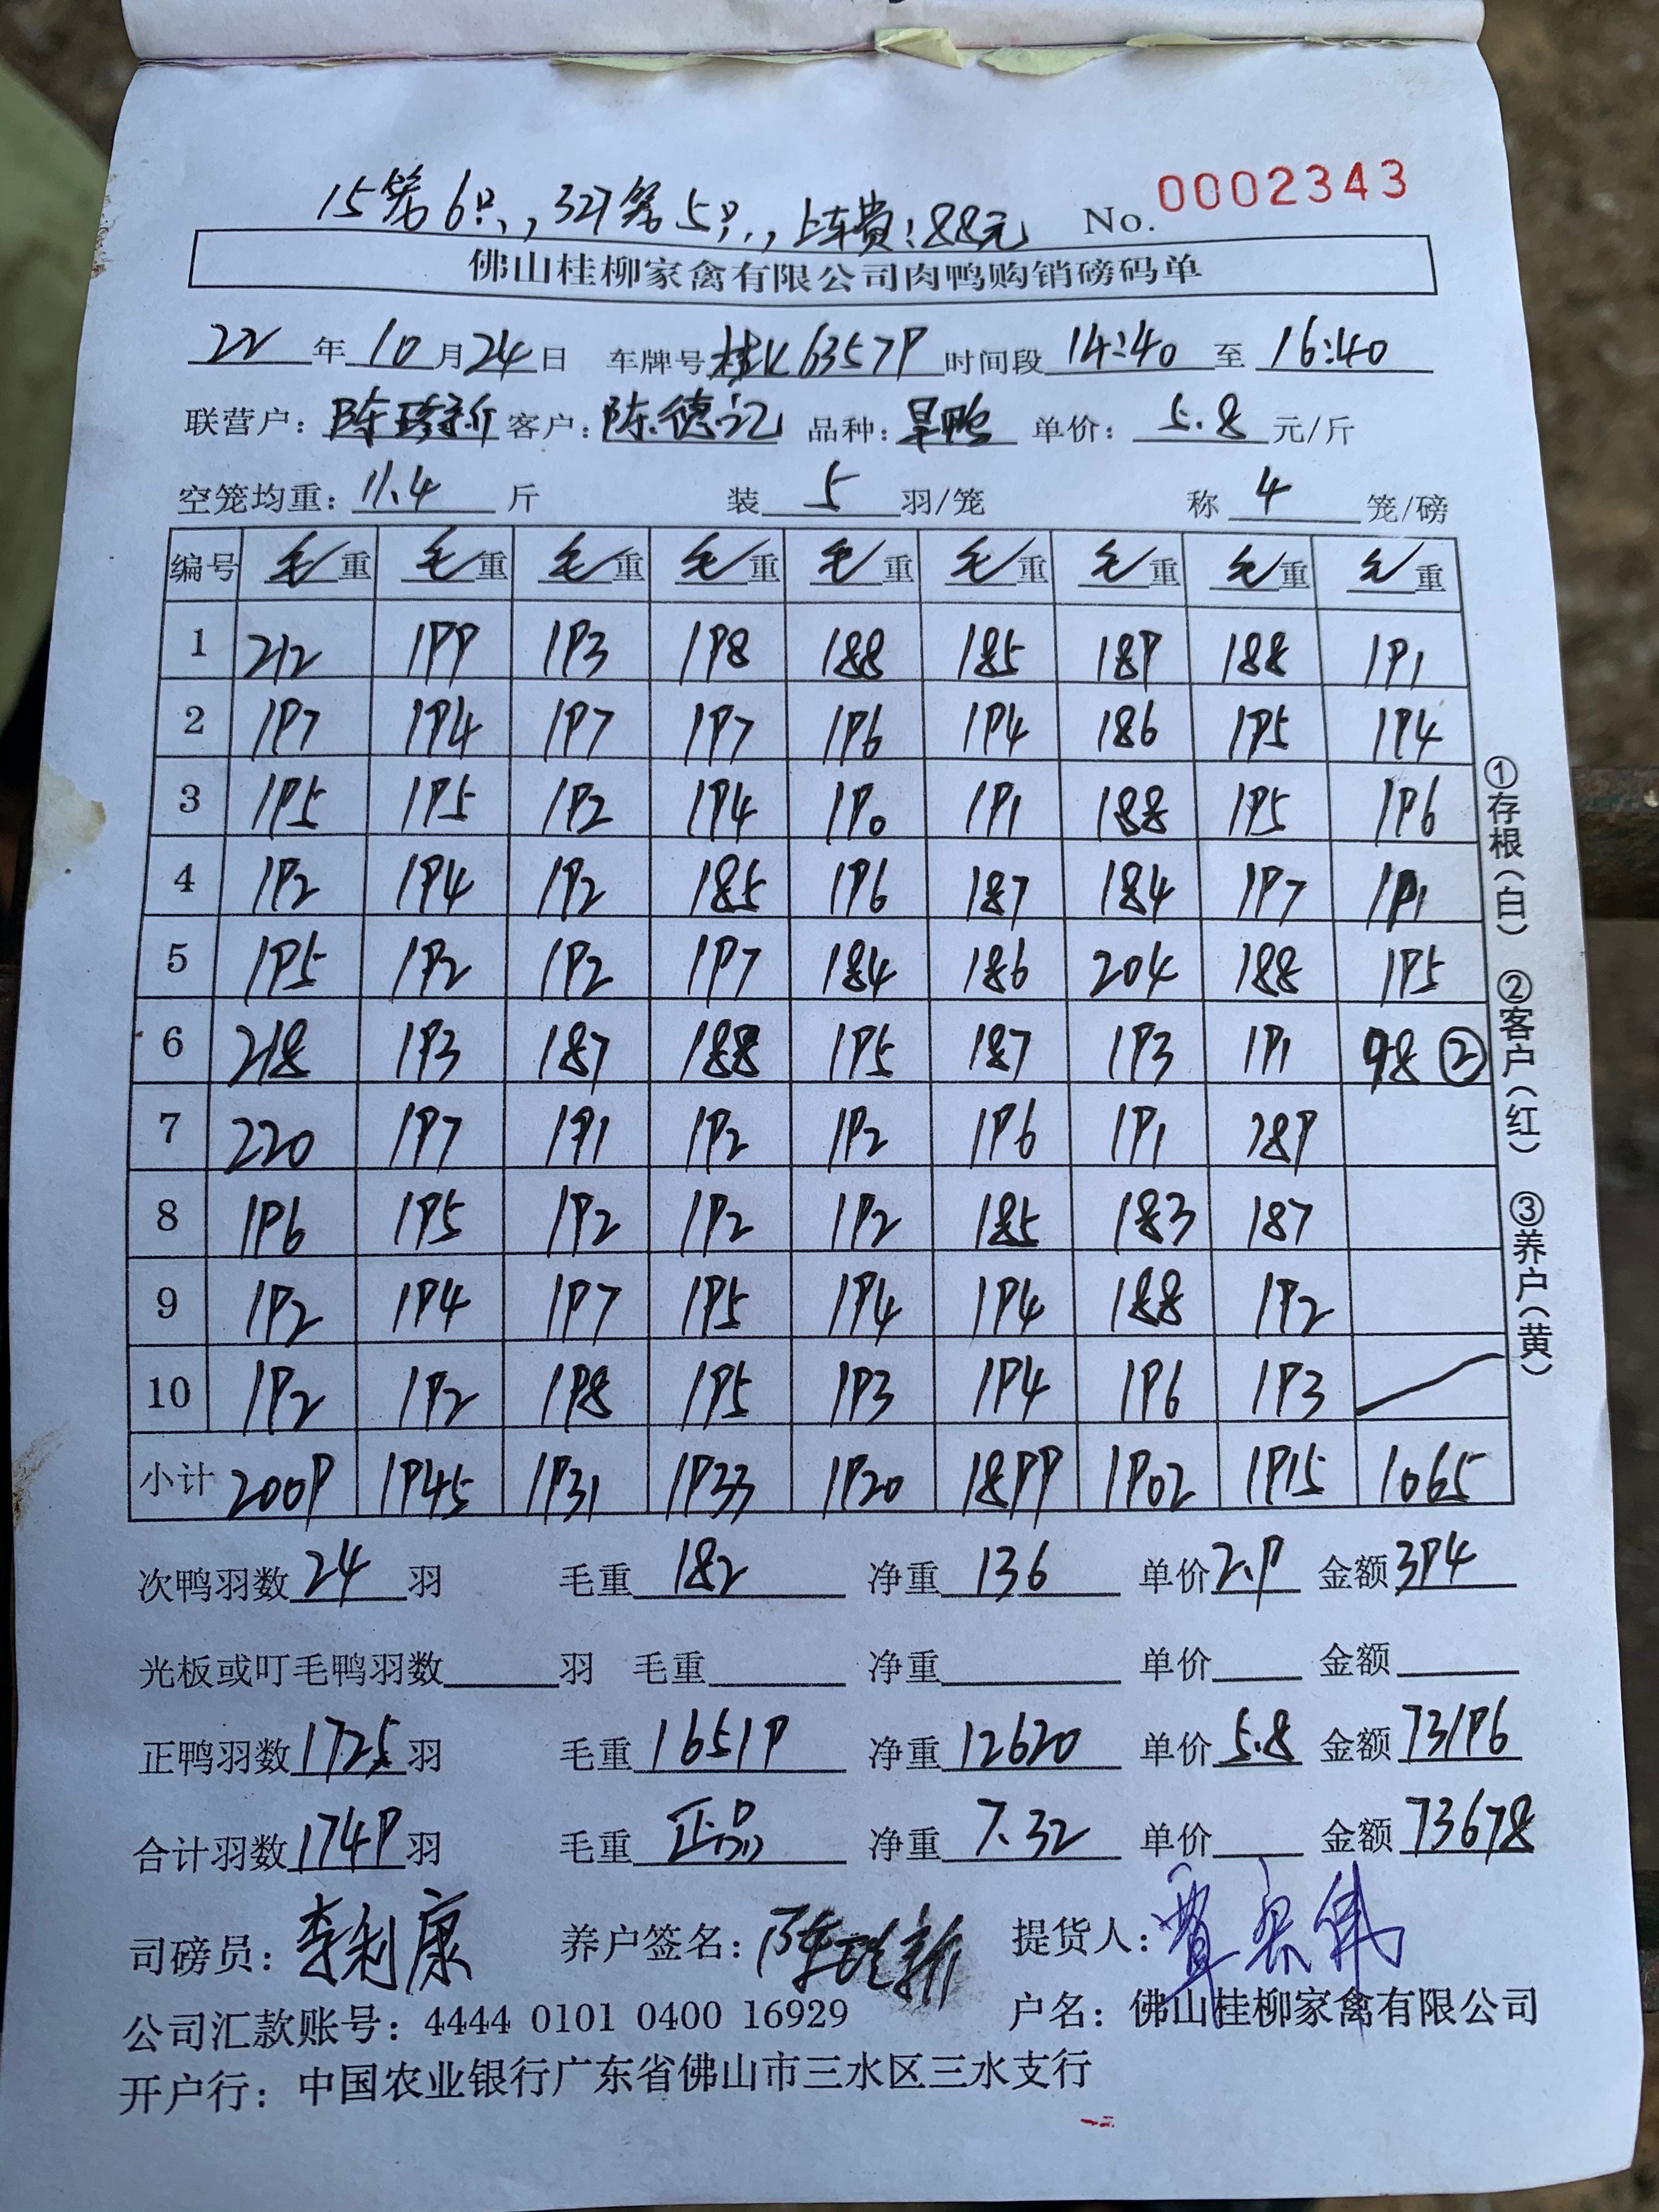 15笼6只,327笼5只,上车费:88元 No. 0002343
佛山桂柳家禽有限公司肉鸭购销磅码单
22年10月24日 车牌号桂K63579 时间段14:40至16:40
联营户: 客户:陈德记 品种:旱鸭 单价:5.8元/斤
空笼均重:11.4斤 装5羽/笼 称4笼/磅
编号 毛重 毛重 毛重 毛重 毛重 毛重 毛重 毛重 毛重
1 212 199 193 198 188 185 189 188 191
2 197 194 197 197 196 194 186 195 194
3 195 195 192 194 190 191 188 195 196
4 192 194 192 185 196 187 184 197 191
5 195 192 192 197 184 186 204 188 195
6 218 193 187 188 195 187 193 191 98②
7 220 197 191 192 192 196 191 189
8 196 195 192 192 192 185 183 187
9 192 194 197 195 194 194 188 192
10 192 192 198 195 193 194 196 193
小计 2009 1945 1931 1933 1920 1899 1902 1915 1065
次鸭羽数24羽 毛重182 净重136 单价2.9 金额394
光板或叮毛鸭羽数羽 毛重 净重 单价 金额
正鸭羽数1725羽 毛重16519 净重12620 单价5.8 金额73196
合计羽数1749羽 毛重正品 净重7.32 单价 金额73678
司磅员:李利康 养户签名: 提货人:
公司汇款账号:4444 0101 0400 16929 户名:佛山桂柳家禽有限公司
开户行:中国农业银行广东省佛山市三水区三水支行
①存根(白) ②客户(红) ③养户(黄)